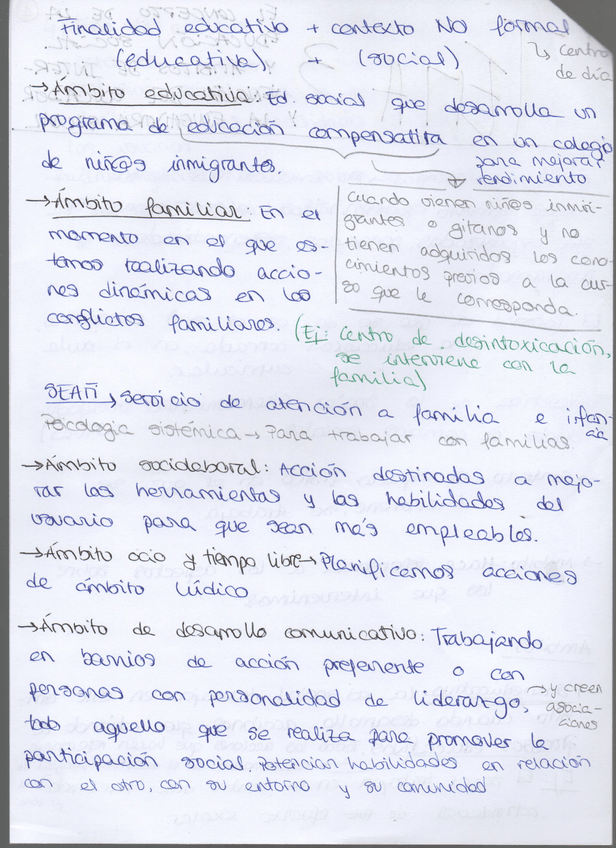 Finalidad educativa + contexto NO formal
(educativa) + (social)
↳ centro
de día
→Ámbito educativo: Ed. social que desarrolla un
programa de educación compensatira en un colegio
de niñ@s inmigrantes.
para mejorar
rendimiento
Cuando vienen niñ@s inmi-
grantes o gitanos y no
tienen adquiridos los cono-
cimientos previos a la cur-
so que le corresponda.
→Ámbito familiar: En el
momento en el que es-
tamos realizando accio-
nes dinámicas en los
conflictos familiares.
(Ej: Centro de desintoxicación,
se interviene con la
familia)
SEAFI → Servicio de atención a familia e infan-
cia
Psicología sistémica → Para trabajar con familias.
→Ámbito sociolaboral: Acción destinadas a mejo-
rar las herramientas y las habilidades del
usuario para que sean más empleables.
→Ámbito ocio y tiempo libre→Planificamos acciones
de ámbito lúdico
→Ámbito de desarrollo comunicativo: Trabajando
en barrios de acción preferente o con
personas con personalidad de liderazgo.
→ y creen
asocia-
ciones
todo aquello que se realiza para promover la
participación social. Potencian habilidades en relación
con el otro, con su entorno y su comunidad